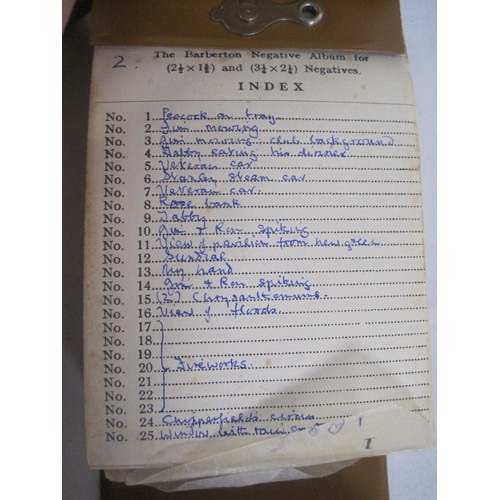 2.
The Barberton Negative Album for
(2½ × 1⅝) and (3¼ × 2¼) Negatives.
INDEX
No. 1. Peacock on tray
No. 2. Jim mowing
No. 3. Jim mowing club background
No. 4. Tabby eating his dinner
No. 5. Veteran car
No. 6. Stanley steam car
No. 7. Veteran car.
No. 8. Rose bank
No. 9. Tabby
No. 10. Jim & Ron spiking
No. 11. View of pavilion from new green
No. 12. Sundial
No. 13. My hand
No. 14. Jim & Ron spiking
No. 15. (2) Chrysanthemums.
No. 16. View of floods.
No. 17
No. 18.
No. 19
No. 20 Fireworks.
No. 21.
No. 22
No. 23
No. 24. Chipperfields circus
No. 25. Window with